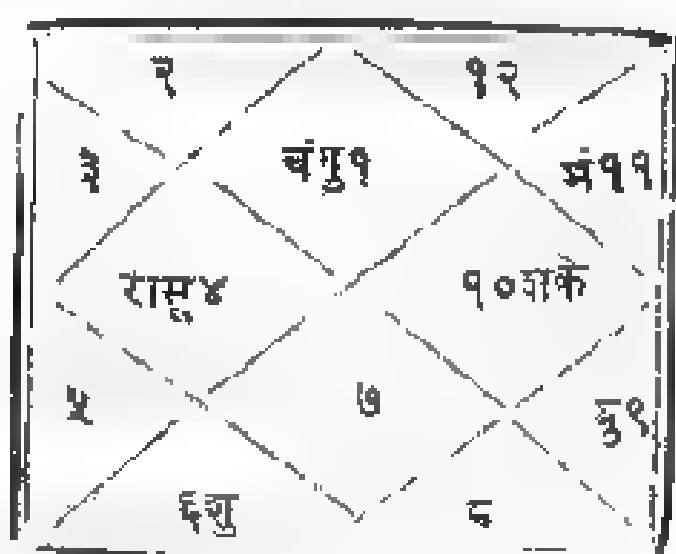 २ १२
३ चंगु१ मं११
रासू४ १०शके
५ ७
६शु ८